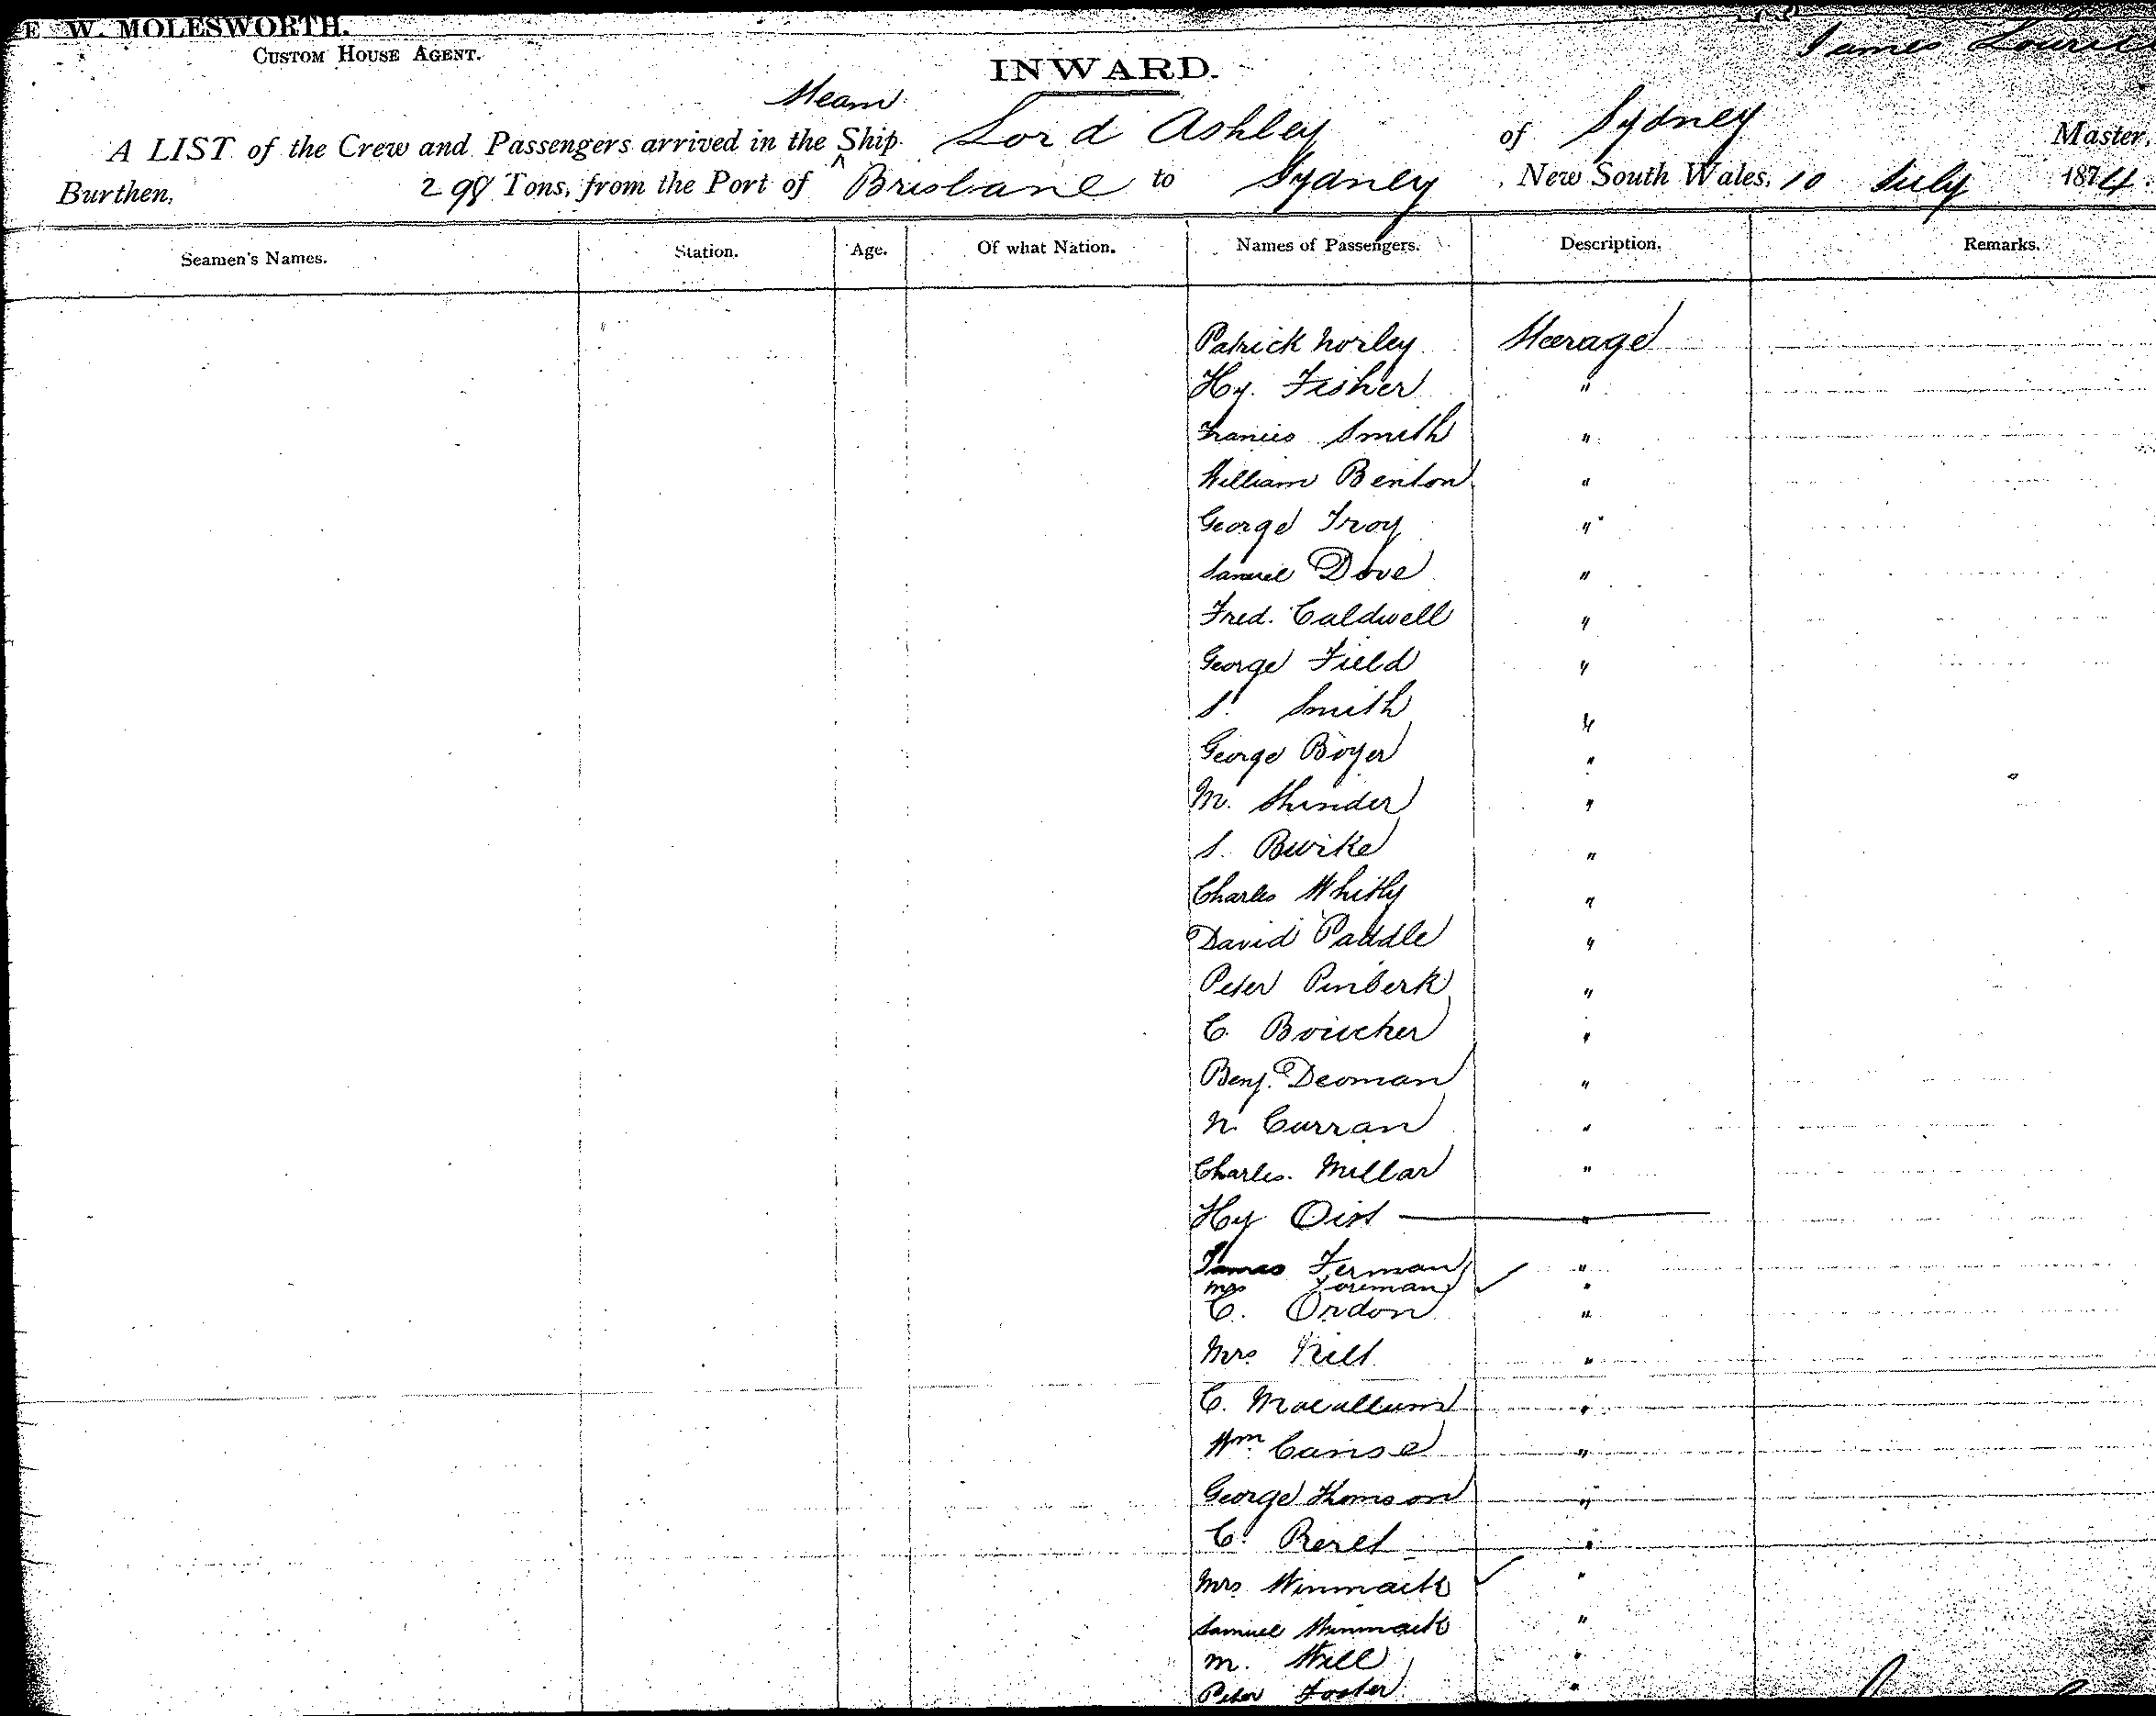 E. W. MOLESWORTH.
CUSTOM HOUSE AGENT.
INWARD.
James Lowrie
Steam
A LIST of the Crew and Passengers arrived in the ^ Ship Lord Ashley of Sydney Master,
Burthen, 298 Tons, from the Port of Brisbane to Sydney, New South Wales, 10 July 1874.
Seamen's Names. Station. Age. Of what Nation. Names of Passengers. Description. Remarks.
Patrick Norley Steerage
Hy. Fisher "
Francis Smith "
William Benton "
George Troy "
Samuel Dove "
Fred. Caldwell "
George Field "
S. Smith "
George Boyer "
M. Shinder "
S. Burke "
Charles Whitly "
David Paddle "
Peter Pinberk "
C. Bourcher "
Benj. Deoman "
N. Curran "
Charles. Millar "
Hy Oist "
James Ferman "
Mrs Foreman "
C. Ordon "
Mrs "
C. Macallum "
Wm Canse "
George Thomson "
C. "
Mrs Winmark "
Samuel Winmark "
M. Will "
Peter Foster "